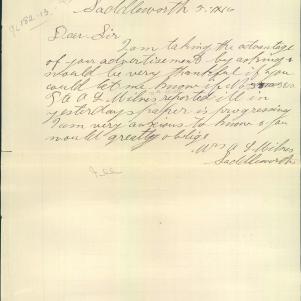 Saddleworth S. Aus
Dear Sir
I am taking the advantage
of your advertisement by asking &
would be very thankful if you
could let me know if No
G A L Milnes reported ill in
yesterdays paper is progressing
I am very anxious to know & you
would greatly oblige
Mrs A L Milnes
Saddleworth